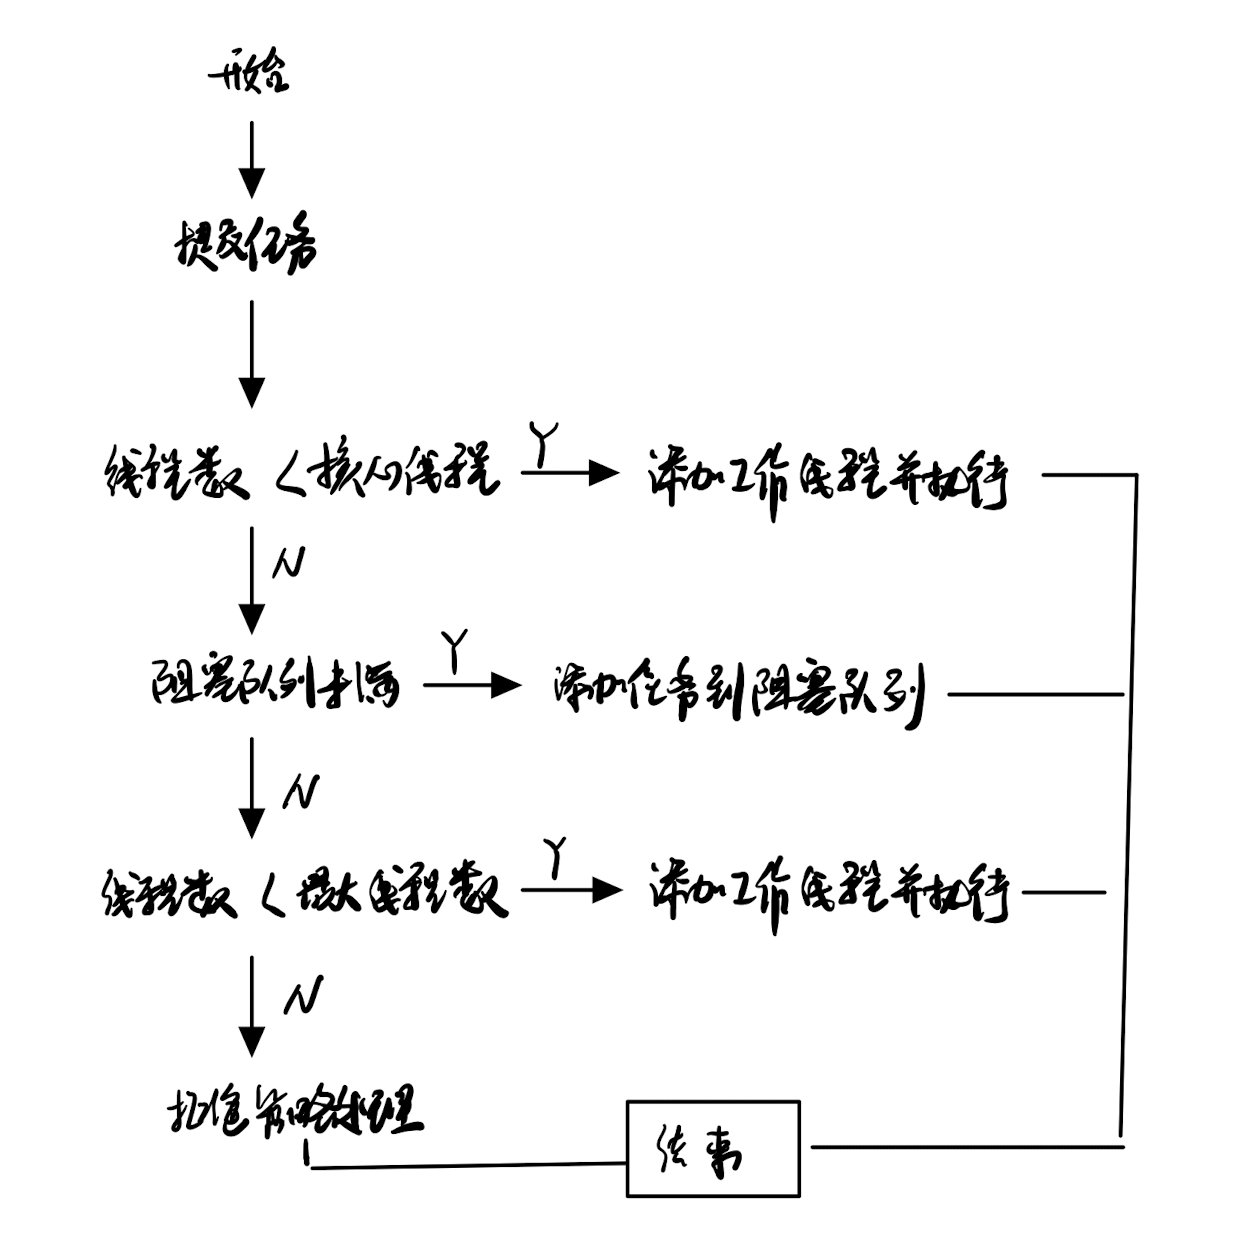 开始
提交任务
线程数 < 核心线程
Y
添加工作线程并执行
N
阻塞队列未满
Y
添加任务到阻塞队列
N
线程数 < 最大线程数
Y
添加工作线程并执行
N
拒绝策略处理
结束